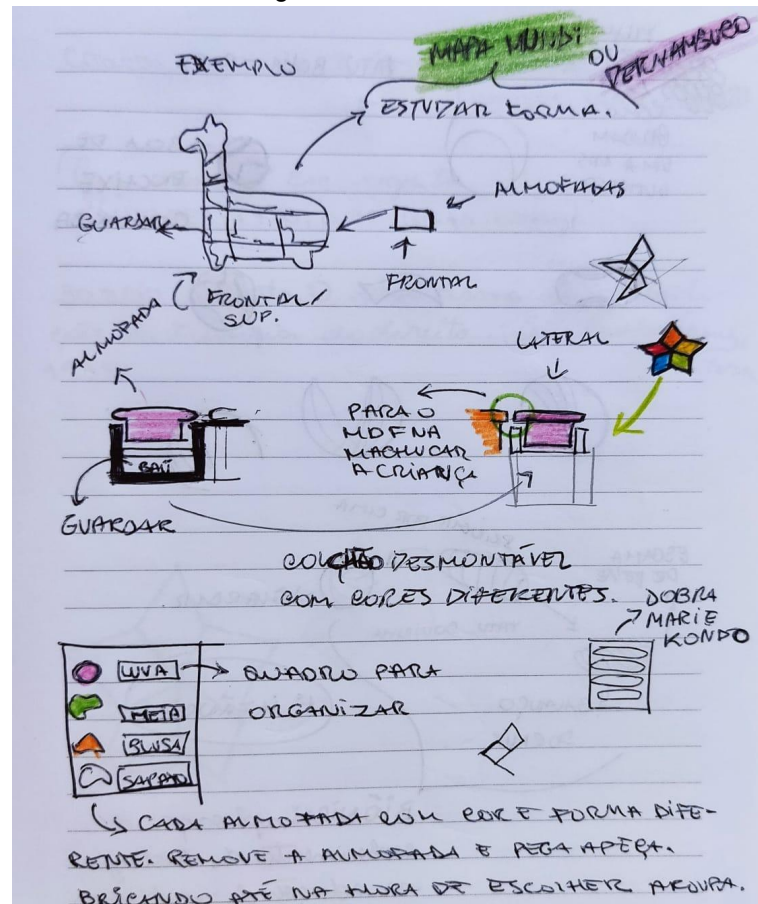 MAPA MUNDI
OU
PERNAMBUCO
EXEMPLO
ESTUDAR FORMA.
ALMOFADAS
GUARDAR
FRONTAL
FRONTAL/
SUP.
ALMOFADA
LATERAL
PARA O
MDF NA
MACHUCAR
A CRIANÇA
BAÚ
GUARDAR
COLCHÃO DESMONTÁVEL
COM CORES DIFERENTES.
DOBRA
MARIE
KONDO
LUVA
QUADRO PARA
META
ORGANIZAR
BLUSA
SAPATO
CADA ALMOFADA COM COR E FORMA DIFE-
RENTE. REMOVE A ALMOFADA E PEGA A PEÇA.
BRICANDO ATÉ NA HORA DE ESCOLHER A ROUPA.